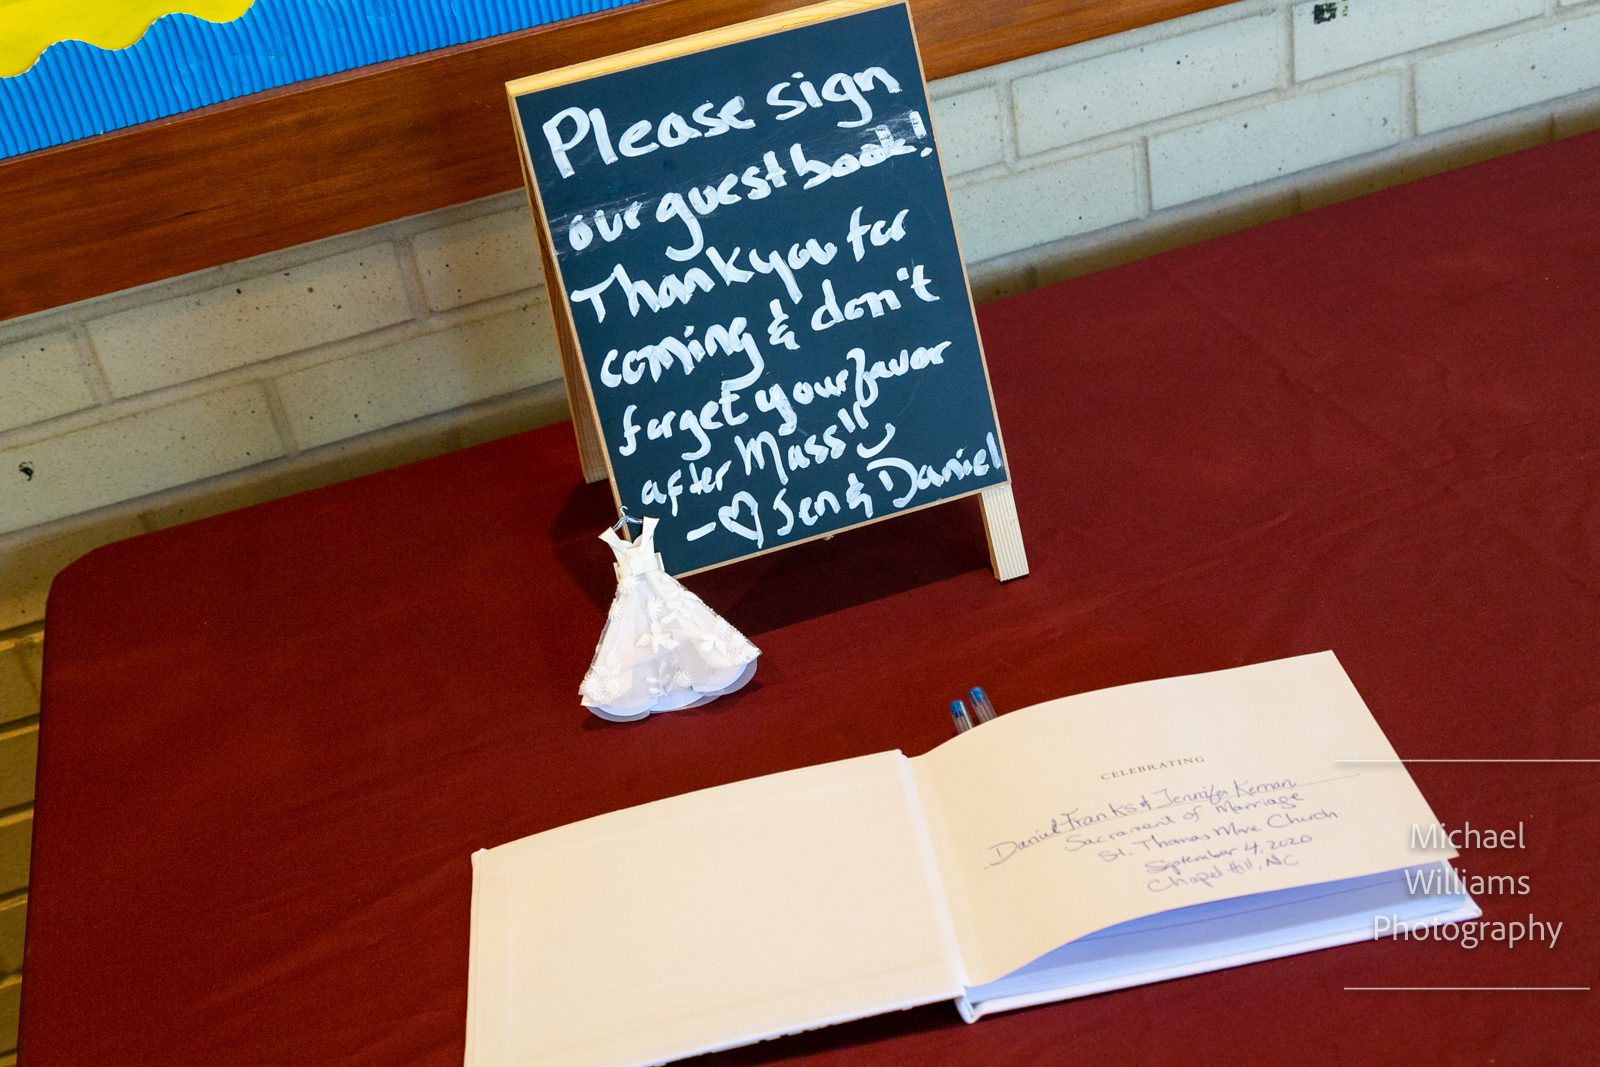 Please sign
our guest book!
Thank you for
coming & don't
forget your favor
after Mass!!
- ♡ Jen & Daniel
CELEBRATING
Daniel Franks & Jennifer Kernan
Sacrament of Marriage
St. Thomas More Church
September 4, 2020
Chapel Hill, NC
Michael
Williams
Photography